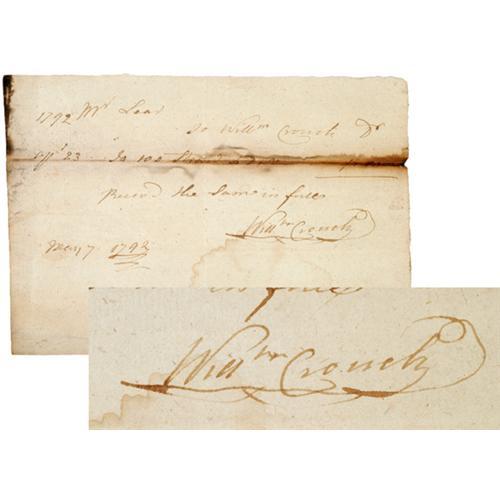 1792 Mr Lear
To Willm Crouch Dr
Apl 23 To 100
Receivd the Same in full
Willm Crouch
May 7 1792
in full
Willm Crouch